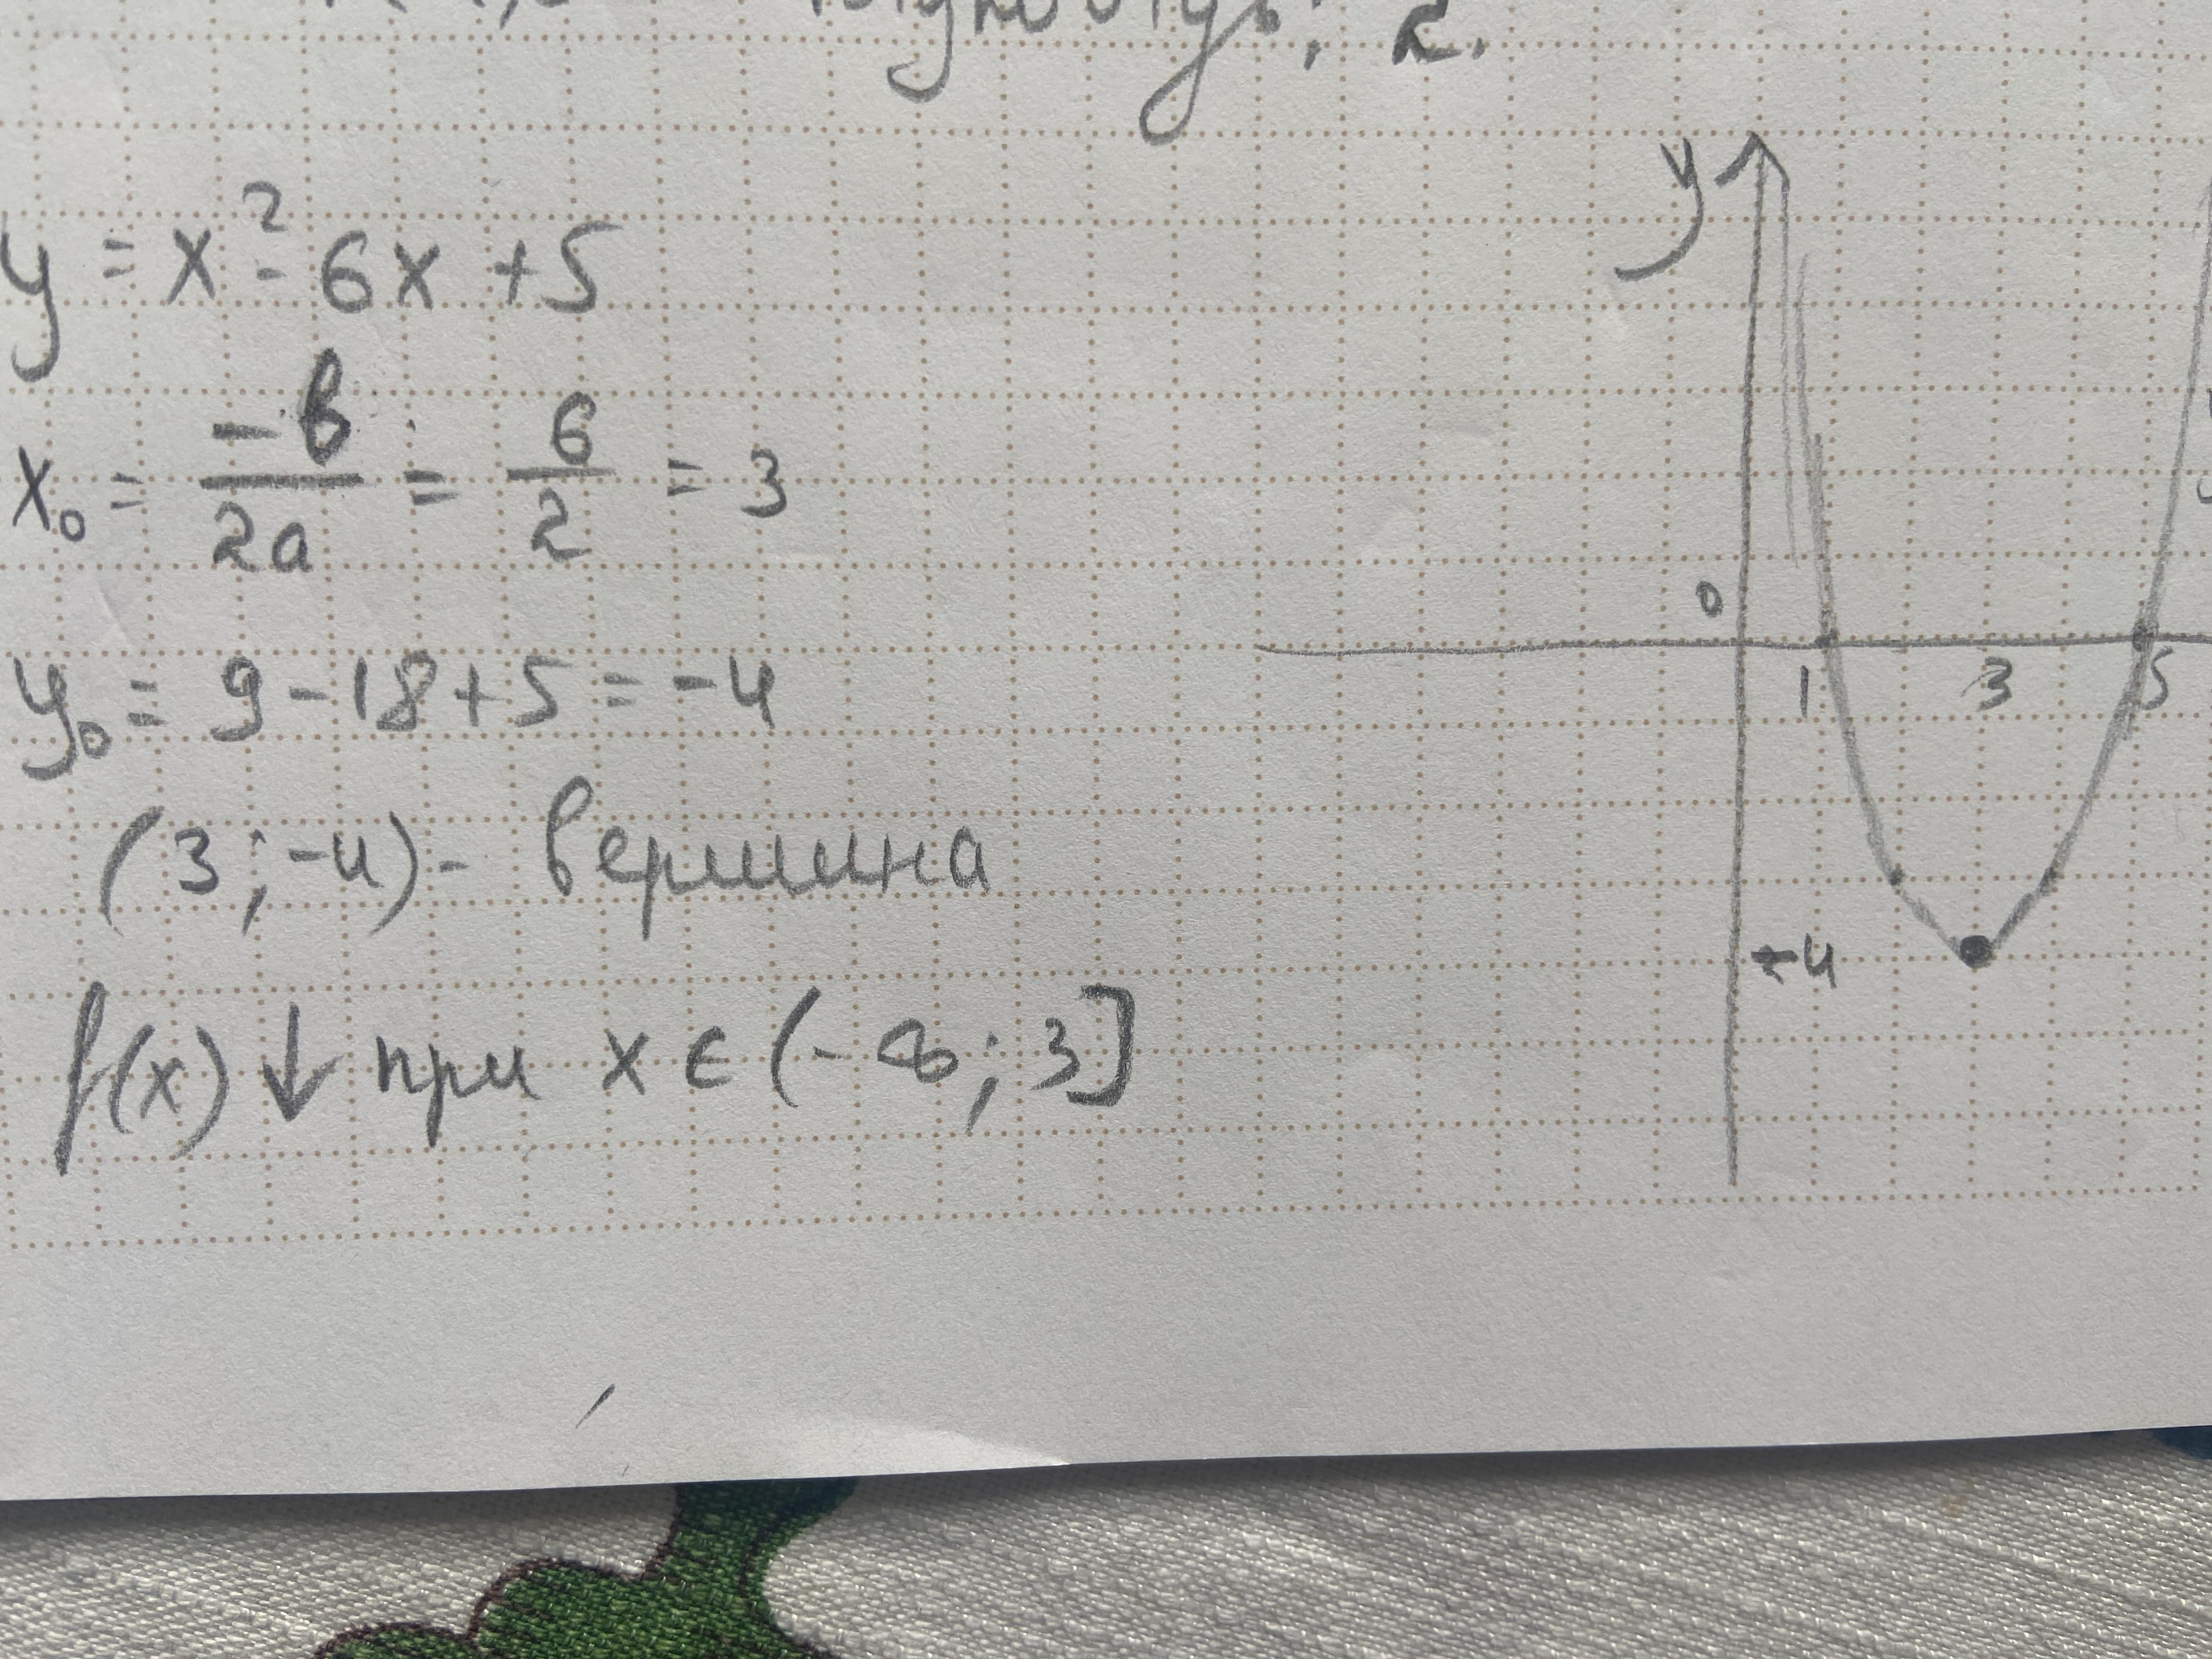 2.
y = x² - 6x + 5
x₀ = -b/2a = 6/2 = 3
y₀ = 9 - 18 + 5 = -4
(3; -4) - вершина
f(x) ↓ при x ∈ (-∞; 3]
y
0
1 3 5
-4